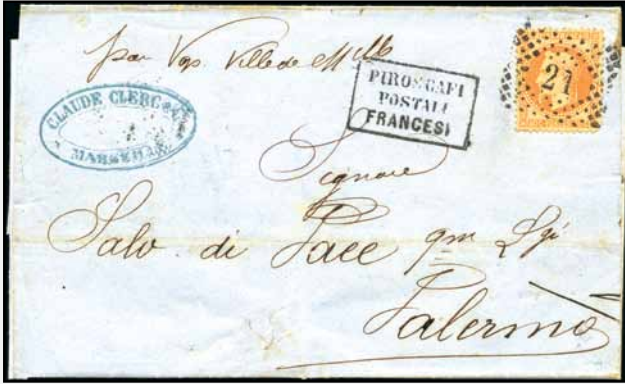 par Vap. Ville de Mlle
CLAUDE CLERC & C
MARSEILLE
PIROSCAFI
POSTALI
FRANCESI
21
Signore
Salv. di Pace qm Lgi
Palermo